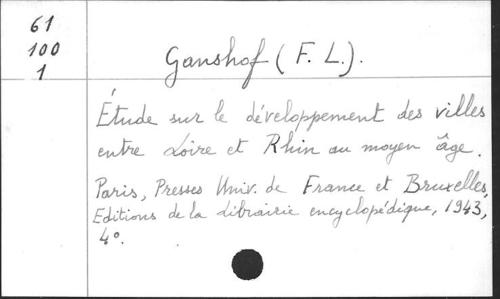 61
100
1
Ganshof (F. L.).
Étude sur le développement des villes
entre Loire et Rhin au moyen âge.
Paris, Presses Univ. de France et Bruxelles,
Editions de la Librairie encyclopédique, 1943,
4°.